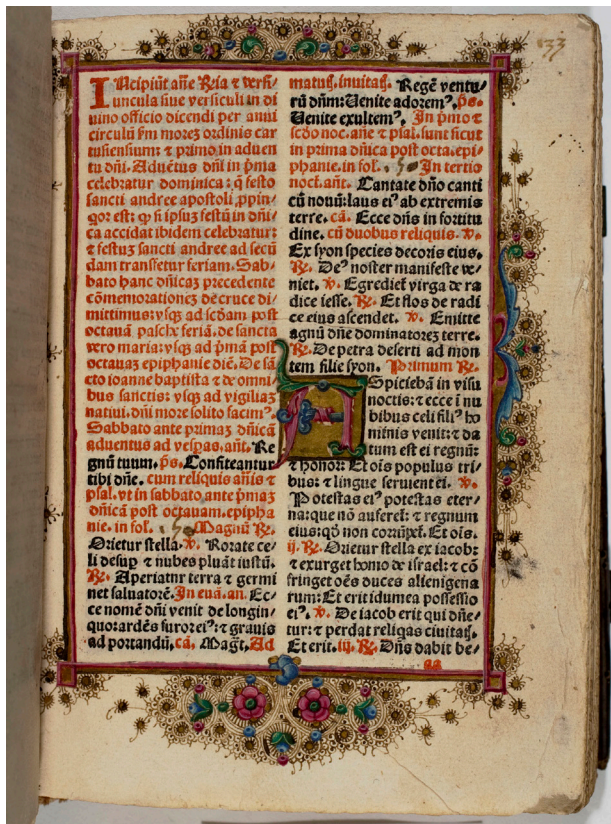 133
INcipiũt añe Ria ⁊ versi⸗
uncula siue versiculi in di
uino officio dicendi per anni
circulũ sm morez ordinis car
tusiensium: ⁊ primo in aduen
tu dñi. Aduẽtus dñi in p̃ma
celebratur dominica: q̃ festo
sancti andree apostoli ,ppin⸗
qor est: ꝙ si ipsuz festũ in dñi⸗
ca accidat ibidem celebratur:
⁊ festuz sancti andree ad secũ
dam transfetur feriam. Sab⸗
bato hanc dñicaz precedente
cõmemorationez de cruce di⸗
mittimus: vsqz ad scdam post
octauã pasche feriã. de sancta
vero maria: vsqz ad p̃mã post
octauaz epiphanie diẽ. De sã
cto ioanne baptista ⁊ de omni
bus sanctis: vsqz ad vigiliaz
natiui. dñi more solito facim⁹.
Sabbato ante primaz dñicã
aduentus ad vesp̃as. añt. Re
gnũ tuum. p̃s. Confiteantur
tibi dñe. cum reliquis añis ⁊
psal. vt in sabbato ante p̃maz
dñicã post octauam. epipha
nie. in fol. 50 Magnũ ℟.
Orietur stella. ℣. Rorate ce⸗
li desup̱ ⁊ nubes pluãt iustũ.
℟. Aperiatnr terra ⁊ germi
net saluatorẽ. In euã. an. Ec⸗
ce nomẽ dñi venit de longin⸗
quo: ardẽs furor ei⁹: ⁊ grauis
ad portandũ. cã. Magt. Ad
matuť. inuitať. Regẽ ventu⸗
rũ dñm: Uenite adorem⁹. p̃s.
Uenite exultem⁹. In p̃mo ⁊
scdo noc. añe ⁊ psal. sunt sicut
in prima dñica post octa. epi⸗
phanie. in fol. 50 In tertio
nocť. añt. Cantate dño canti
cũ nouũ: laus ei⁹ ab extremis
terre. cã. Ecce dñs in fortitu
dine. cũ duobus reliquis. ℣.
Ex syon species decoris eius.
℟. De⁹ noster manifeste ve⸗
niet. ℣. Egredieť virga de ra
dice iesse. ℟. Et flos de radi
ce eius ascendet. ℣. Emitte
agnũ dñe dominatorez terre.
℟. De petra deserti ad mon
tem filie syon. Primum ℟.
ASpiciebã in visu
noctis: ⁊ ecce ĩ nu
bibus celi fili⁹ ho
minis venit: ⁊ da
tum est ei regnũ:
⁊ honor: Et oĩs populus tri⸗
bus: ⁊ lingue seruient ei. ℣.
Potestas ei⁹ potestas eter⸗
na: que nõ aufereť: ⁊ regnum
eius: qđ non corrũpeť. Et oĩs.
ij. ℟. Orietur stella ex iacob:
⁊ exurget homo de israel: ⁊ cõ
fringet oẽs duces alienigena
rum: Et erit idumea possessio
ei⁹. ℣. De iacob erit qui dñe⸗
tur: ⁊ perdat reliqas ciuitať.
Et erit. iij. ℟. Dñs dabit be⸗